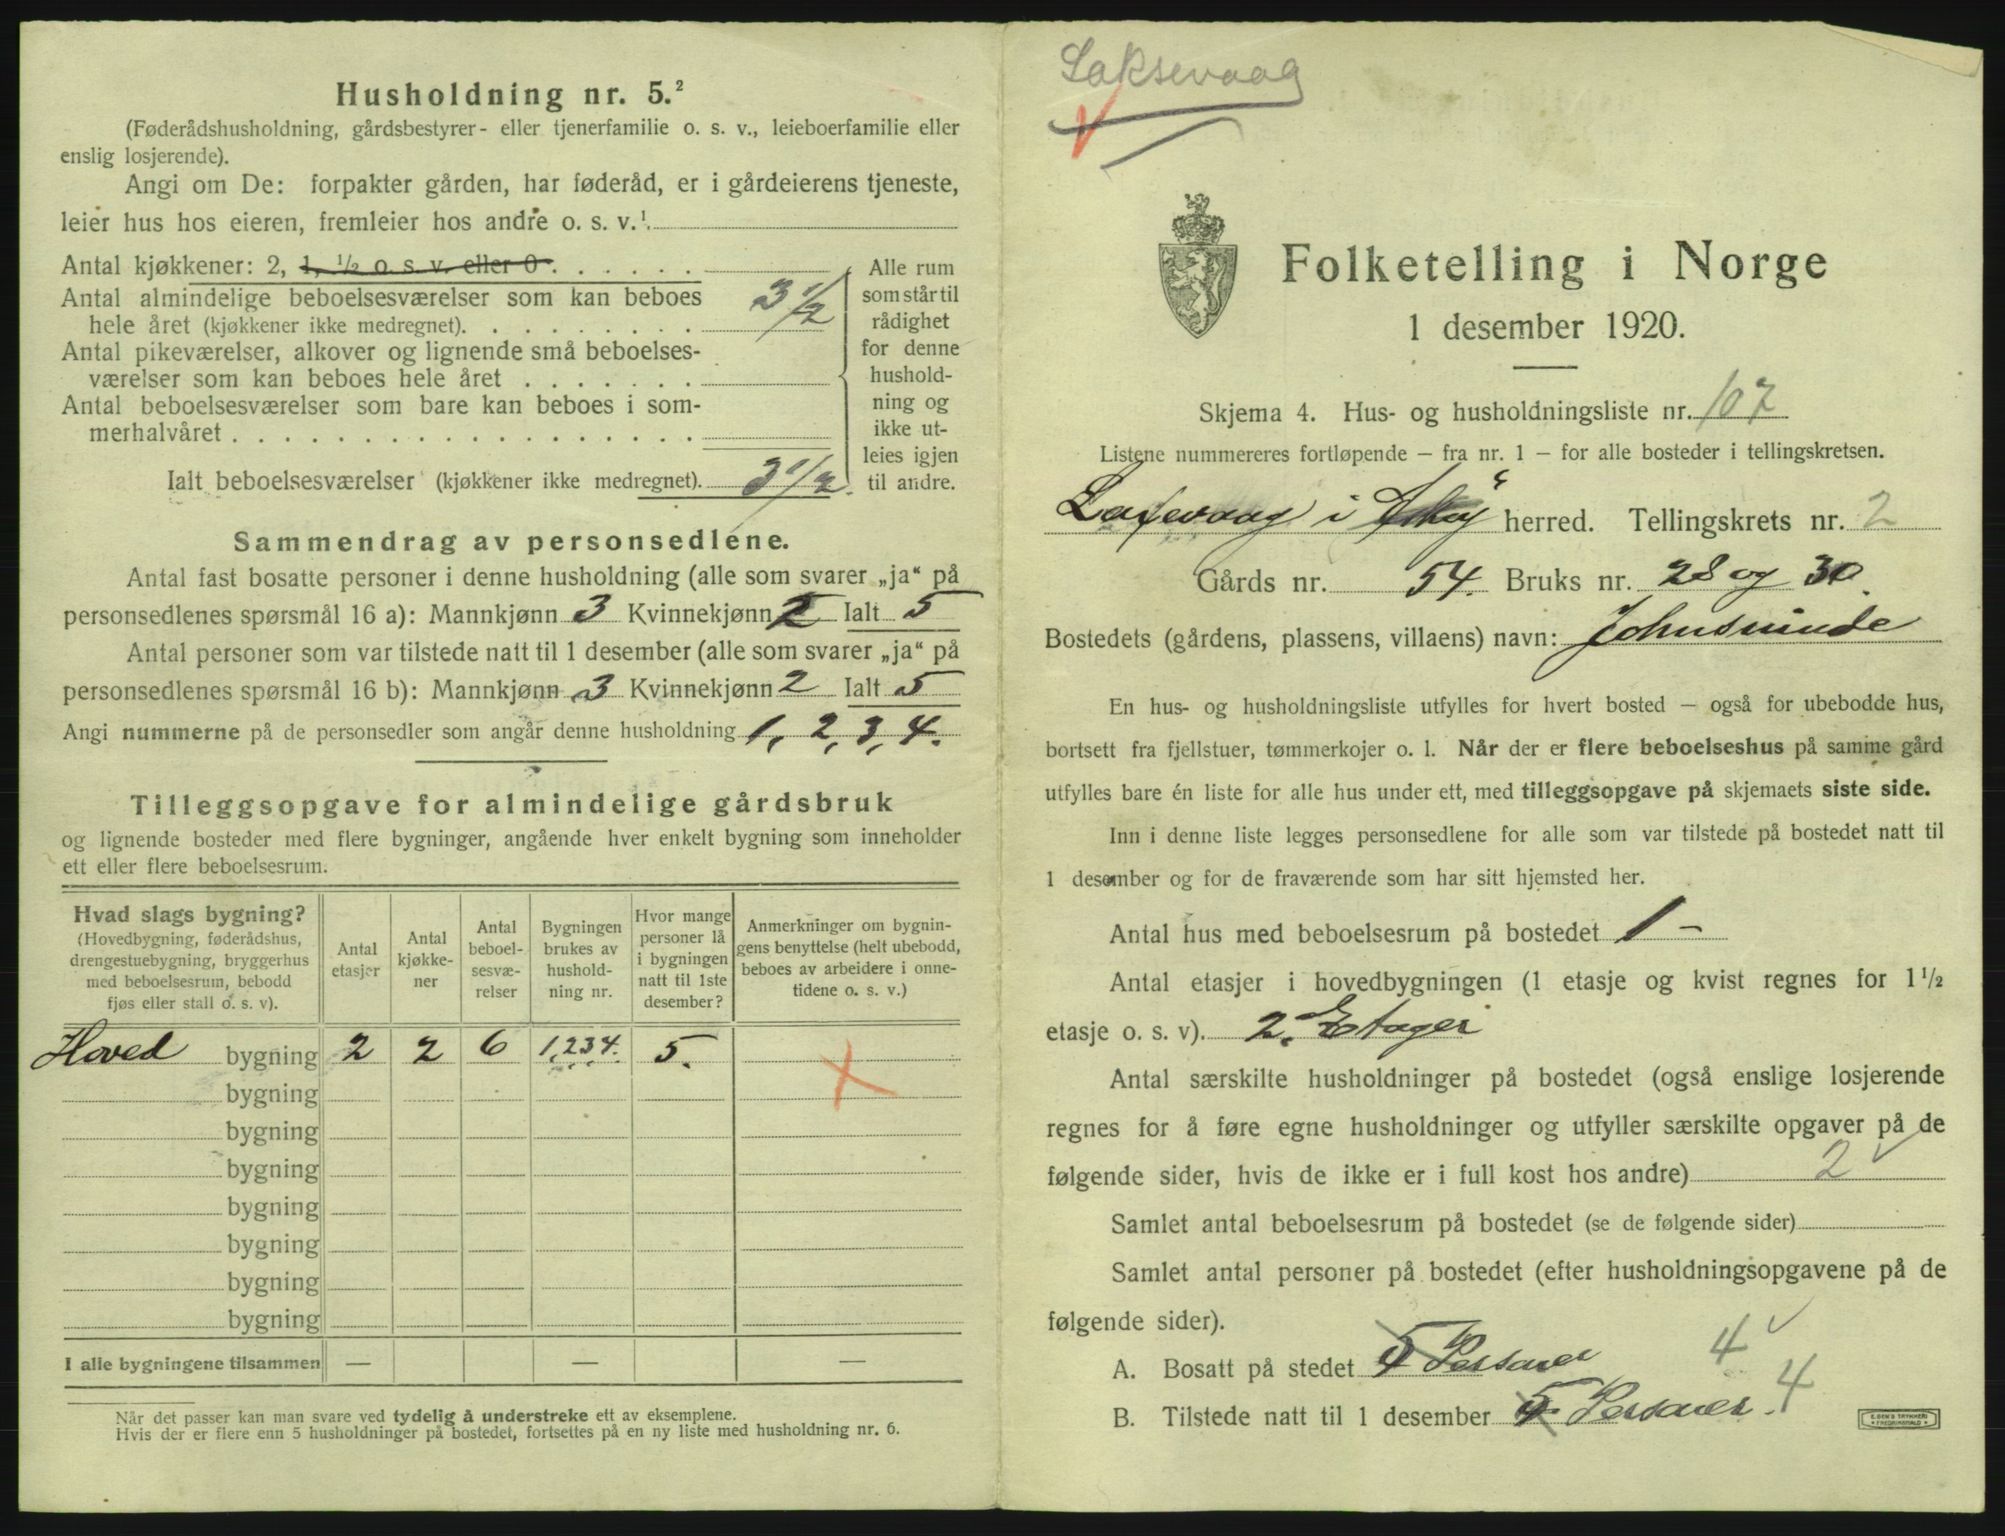 Husholdning nr. 5.²
(Føderådshusholdning, gårdsbestyrer- eller tjenerfamilie o. s. v., leieboerfamilie eller
enslig losjerende).
Angi om De: forpakter gården, har føderåd, er i gårdeierens tjeneste,
leier hus hos eieren, fremleier hos andre o. s. v.¹
Antal kjøkkener: 2, 1, ½ o. s. v. eller 0
Antal almindelige beboelsesværelser som kan beboes
hele året (kjøkkener ikke medregnet). 3 1/2
Antal pikeværelser, alkover og lignende små beboelses-
værelser som kan beboes hele året
Antal beboelsesværelser som bare kan beboes i som-
merhalvåret
Ialt beboelsesværelser (kjøkkener ikke medregnet). 3 1/2.
Alle rum
som står til
rådighet
for denne
hushold-
ning og
ikke ut-
leies igjen
til andre.
Sammendrag av personsedlene.
Antal fast bosatte personer i denne husholdning (alle som svarer „ja“ på
personsedlenes spørsmål 16 a): Mannkjønn 3 Kvinnekjønn 2 Ialt 5
Antal personer som var tilstede natt til 1 desember (alle som svarer „ja“ på
personsedlenes spørsmål 16 b): Mannkjønn 3 Kvinnekjønn 2 Ialt 5
Angi nummerne på de personsedler som angår denne husholdning 1, 2, 3, 4.
Tilleggsopgave for almindelige gårdsbruk
og lignende bosteder med flere bygninger, angående hver enkelt bygning som inneholder
ett eller flere beboelsesrum.
Hvad slags bygning?
(Hovedbygning, føderådshus,
drengestuebygning, bryggerhus
med beboelsesrum, bebodd
fjøs eller stall o. s. v).
Antal
etasjer
Antal
kjøkke-
ner
Antal
beboel-
sesvæ-
relser
Bygningen
brukes av
hushold-
ning nr.
Hvor mange
personer lå
i bygningen
natt til 1ste
desember?
Anmerkninger om bygnin-
gens benyttelse (helt ubebodd,
beboes av arbeidere i onne-
tidene o. s. v.)
Hoved bygning 2 2 6 1,2,3,4. 5.
bygning
bygning
bygning
bygning
bygning
bygning
bygning
I alle bygningene tilsammen — — —
Når det passer kan man svare ved tydelig å understreke ett av eksemplene.
Hvis der er flere enn 5 husholdninger på bostedet, fortsettes på en ny liste med husholdning nr. 6.
Laksevaag
Folketelling i Norge
1 desember 1920.
Skjema 4. Hus- og husholdningsliste nr. 107
Listene nummereres fortløpende – fra nr. 1 – for alle bosteder i tellingskretsen.
Laxevaag i Askøy herred. Tellingskrets nr. 2
Gårds nr. 54. Bruks nr. 28 og 30.
Bostedets (gårdens, plassens, villaens) navn: Johnsminde
En hus- og husholdningsliste utfylles for hvert bosted – også for ubebodde hus,
bortsett fra fjellstuer, tømmerkojer o. l. Når der er flere beboelseshus på samme gård
utfylles bare én liste for alle hus under ett, med tilleggsopgave på skjemaets siste side.
Inn i denne liste legges personsedlene for alle som var tilstede på bostedet natt til
1 desember og for de fraværende som har sitt hjemsted her.
Antal hus med beboelsesrum på bostedet 1 –
Antal etasjer i hovedbygningen (1 etasje og kvist regnes for 1 ½
etasje o. s. v). 2. Etager
Antal særskilte husholdninger på bostedet (også enslige losjerende
regnes for å føre egne husholdninger og utfyller særskilte opgaver på de
følgende sider, hvis de ikke er i full kost hos andre) 2
Samlet antal beboelsesrum på bostedet (se de følgende sider)
Samlet antal personer på bostedet (efter husholdningsopgavene på de
følgende sider).
A. Bosatt på stedet 5 Personer 4
B. Tilstede natt til 1 desember 5 Personer 4
E. SEM'S TRYKKERI
FREDRIKSHALD